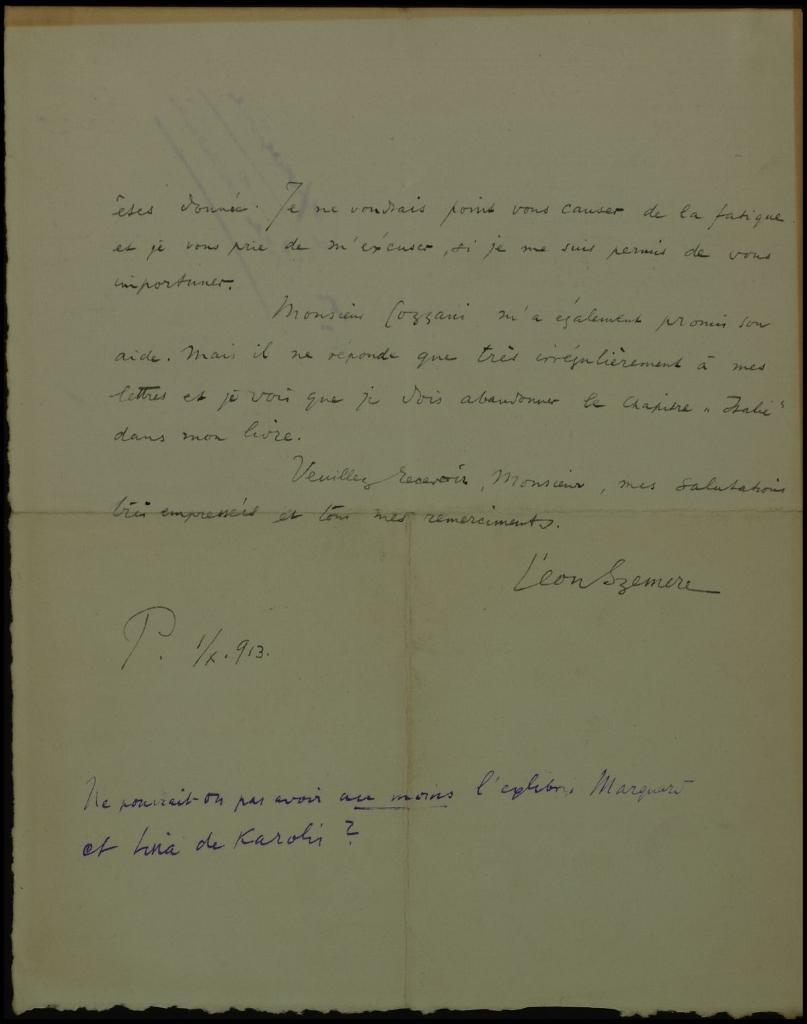 êtes donnée. Je ne voudrais point vous causer de la fatigue
et je vous prie de m'excuser, si je me suis permis de vous
importuner.
Monsieur Cozzani m'a également promis son
aide. Mais il ne réponde que très irrégulièrement à mes
lettres et je vois que je dois abandonner le chapitre „Italie"
dans mon livre.
Veuillez recevoir, Monsieur, mes salutations
très empressés et tous mes remerciments.
Léon Szemere
P. 1/X. 913.
Ne pourrait-on pas avoir au moins l'exlibris
et de Karolis ?